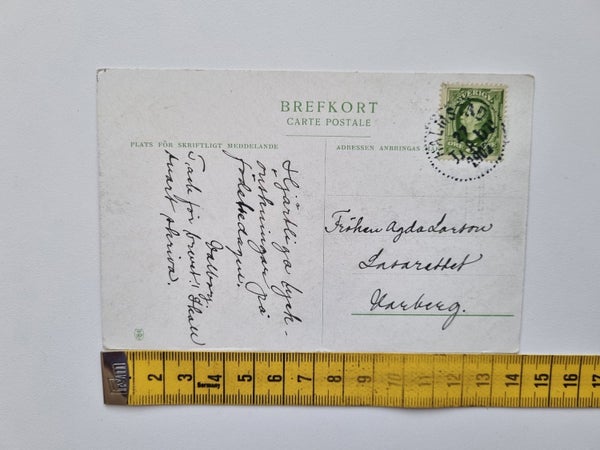 BREFKORT
CARTE POSTALE
PLATS FÖR SKRIFTLIGT MEDDELANDE
ADRESSEN ANBRINGAS
SVERIGE
Hjärtliga lyck-
önskningar på
födelsedagen.
Valborg.
Tack för brevet! Skall
snart skriva.
Fröken Agda Larson
Lasarettet
Warberg.
2 3 4 5 6 7 8 9 10 11 12 13 14 15 16 17
Germany